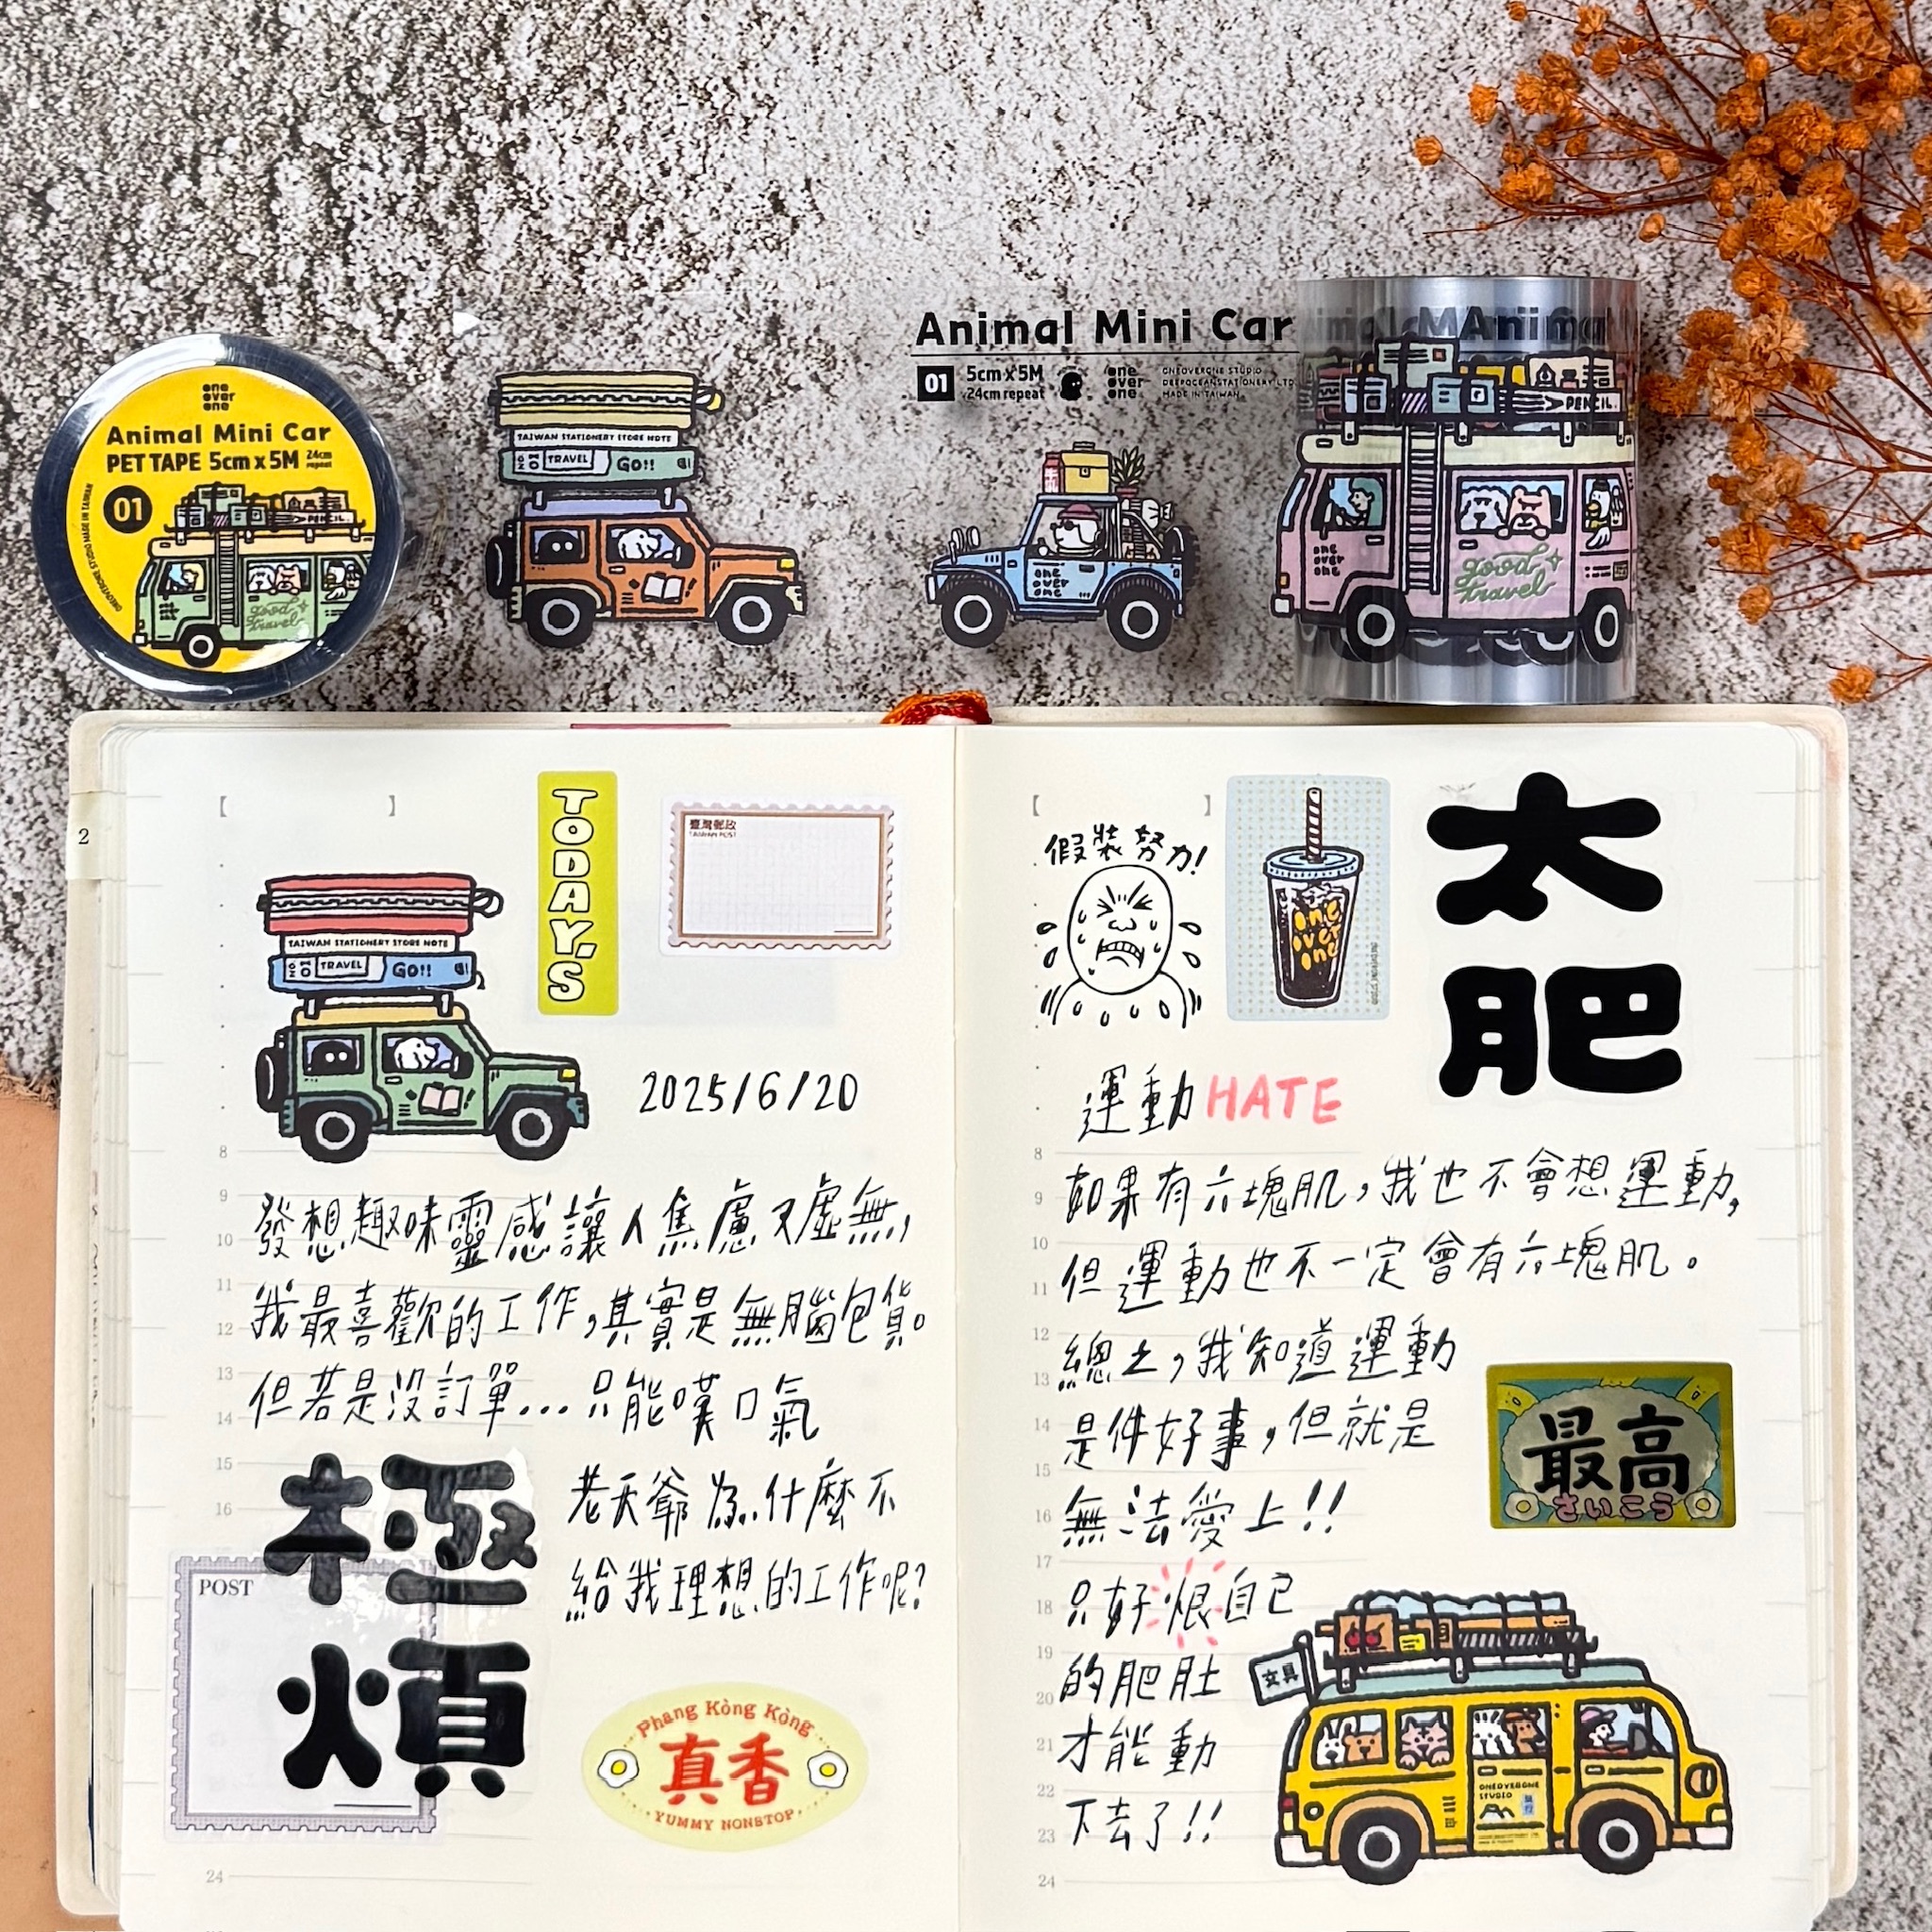 one over one
Animal Mini Car
PET TAPE 5cm x 5M 24cm repeat
01
ONEOVERONE STUDIO MADE IN TAIWAN
PENCIL
good travel
TAIWAN STATIONERY STORE NOTE
NO 01 TRAVEL GO!!
one over one
Animal Mini Car
01 5cm x 5M
24cm repeat
one over one
ONEOVERONE STUDIO
DEEPOCEANSTATIONERY LTD.
MADE IN TAIWAN
PENCIL
one over one
good travel
2
TODAY'S
臺灣郵政
TAIWAN POST
TAIWAN STATIONERY STORE NOTE
NO 01 TRAVEL GO!!
2025/6/20
發想趣味靈感讓人焦慮又虛無,
我最喜歡的工作,其實是無腦包貨。
但若是沒訂單...只能嘆口氣
極煩
老天爺為什麼不
給我理想的工作呢?
POST
Phang Kòng Kòng
真香
YUMMY NONSTOP
8
9
10
11
12
13
14
15
16
24
假裝努力!
one over one
太肥
運動HATE
如果有六塊肌,我也不會想運動,
但運動也不一定會有六塊肌。
總之,我知道運動
是件好事,但就是
無法愛上!!
只好恨自己
的肥肚
才能動
下去了!!
最高
さいこう
文具
ONEOVERONE
STUDIO
8
9
10
11
12
13
14
15
16
17
18
19
20
21
22
23
24